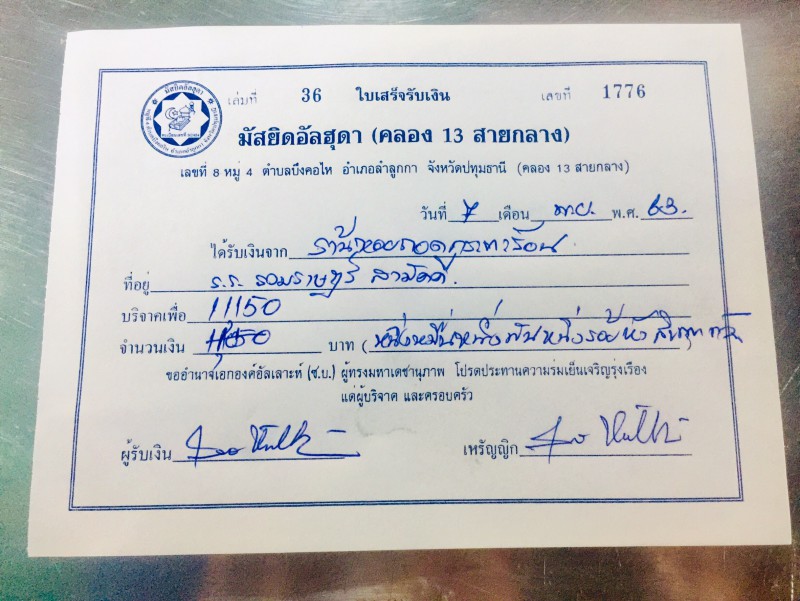 เล่มที่ 36 ใบเสร็จรับเงิน เลขที่ 1776
มัสยิดอัลฮุดา (คลอง 13 สายกลาง)
เลขที่ 8 หมู่ 4 ตำบลบึงคอไห อำเภอลำลูกกา จังหวัดปทุมธานี (คลอง 13 สายกลาง)
วันที่ 7 เดือน พ.ศ. 63.
ได้รับเงินจาก ร้านหอยทอดกระทะร้อน
ที่อยู่ ร.ร. รวมราษฎร์ สามัคคี.
บริจาคเพื่อ 11150
จำนวนเงิน 11150 บาท (หนึ่งหมื่นหนึ่งพันหนึ่งร้อยห้าสิบบาท
ขออำนาจเอกองค์อัลเลาะห์ (ซ.บ.) ผู้ทรงมหาเดชานุภาพ โปรดประทานความร่มเย็นเจริญรุ่งเรือง
แด่ผู้บริจาค และครอบครัว
ผู้รับเงิน เหรัญญิก